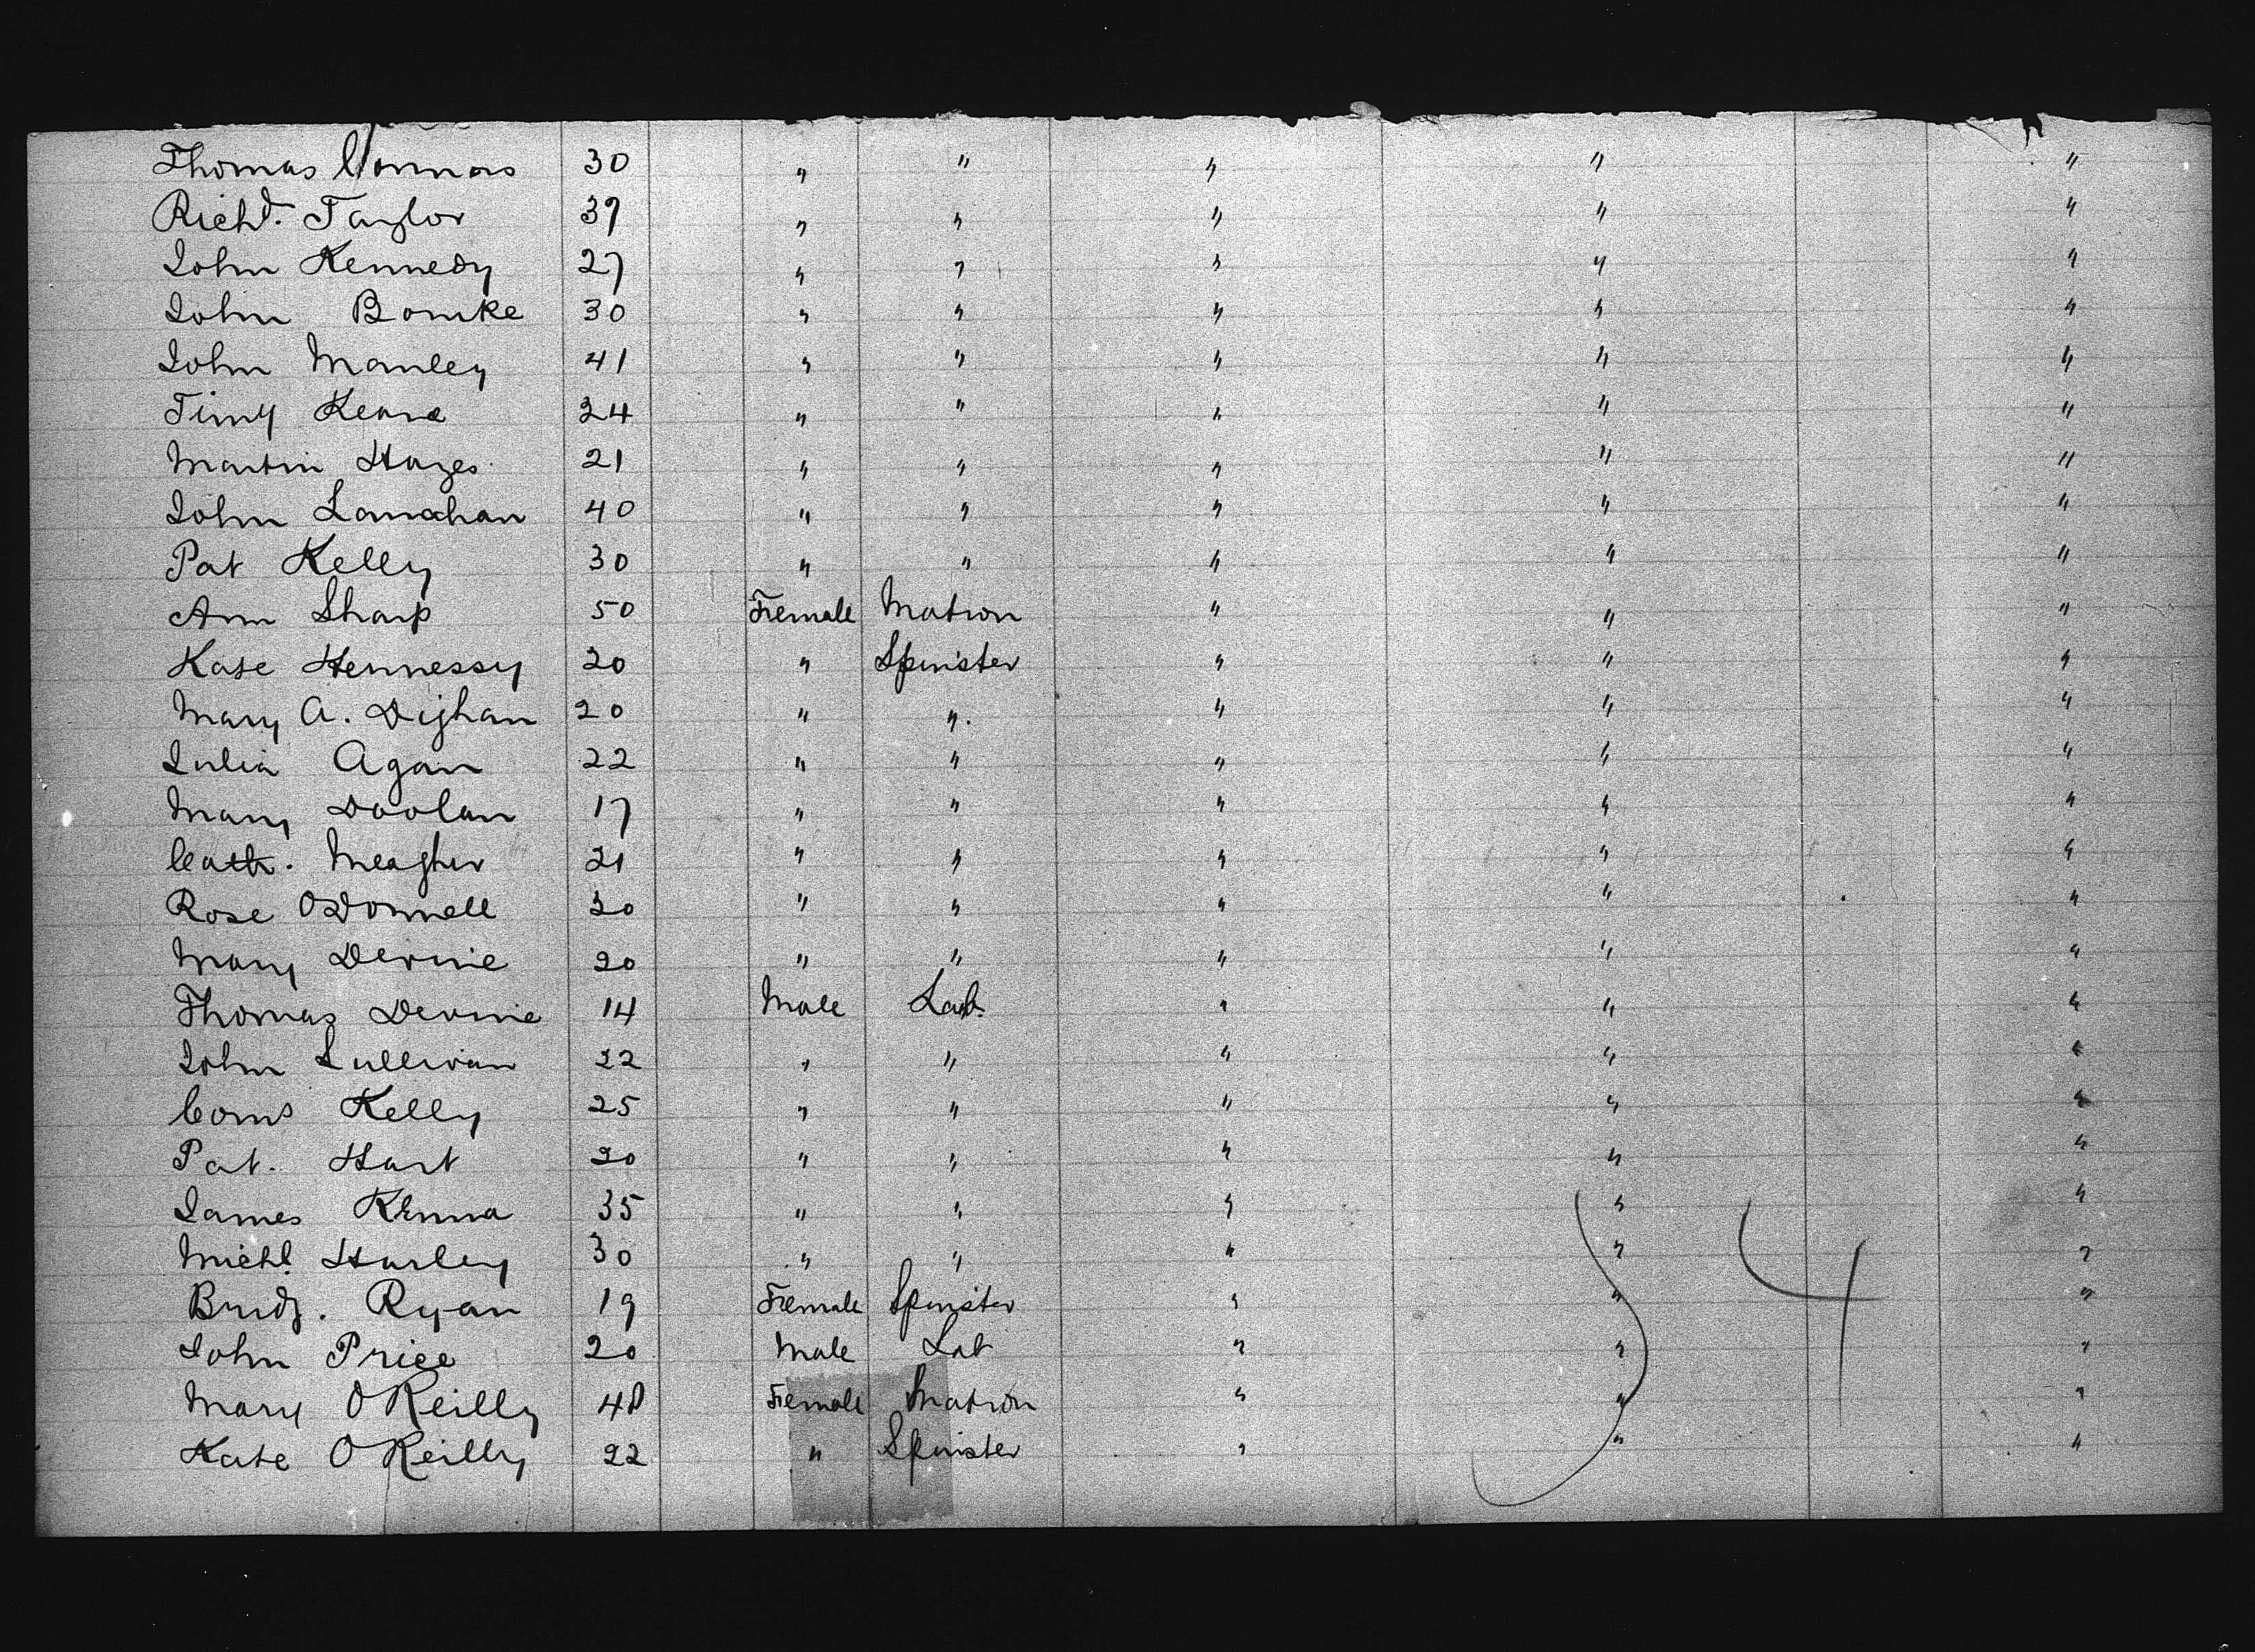 Thomas Connors 30 " " " " "
Richd. Taylor 39 " " " " "
John Kennedy 27 " " " " "
John Bourke 30 " " " " "
John Manley 41 " " " " "
Timy Keane 24 " " " " "
Martin Hayes 21 " " " " "
John Lanahan 40 " " " " "
Pat Kelly 30 " " " " "
Ann Sharp 50 Female Matron " " "
Kate Hennessy 20 " Spinster " " "
Mary A. Dighan 20 " " " " "
Julia Agan 22 " " " " "
Mary Doolan 17 " " " " "
Cath. Meagher 21 " " " " "
Rose ODonnell 30 " " " " "
Mary Devine 20 " " " " "
Thomas Devine 14 Male Lab. " " "
John Sullivan 22 " " " " "
Corns Kelly 25 " " " " "
Pat. Hart 20 " " " " "
James Kenna 35 " " " " "
Michl. Hurley 30 " " " " "
Bridg. Ryan 19 Female Spinster " " "
John Price 20 Male Lab " " "
Mary OReilly 48 Female Matron " " "
Kate OReilly 22 " Spinster " " "
54